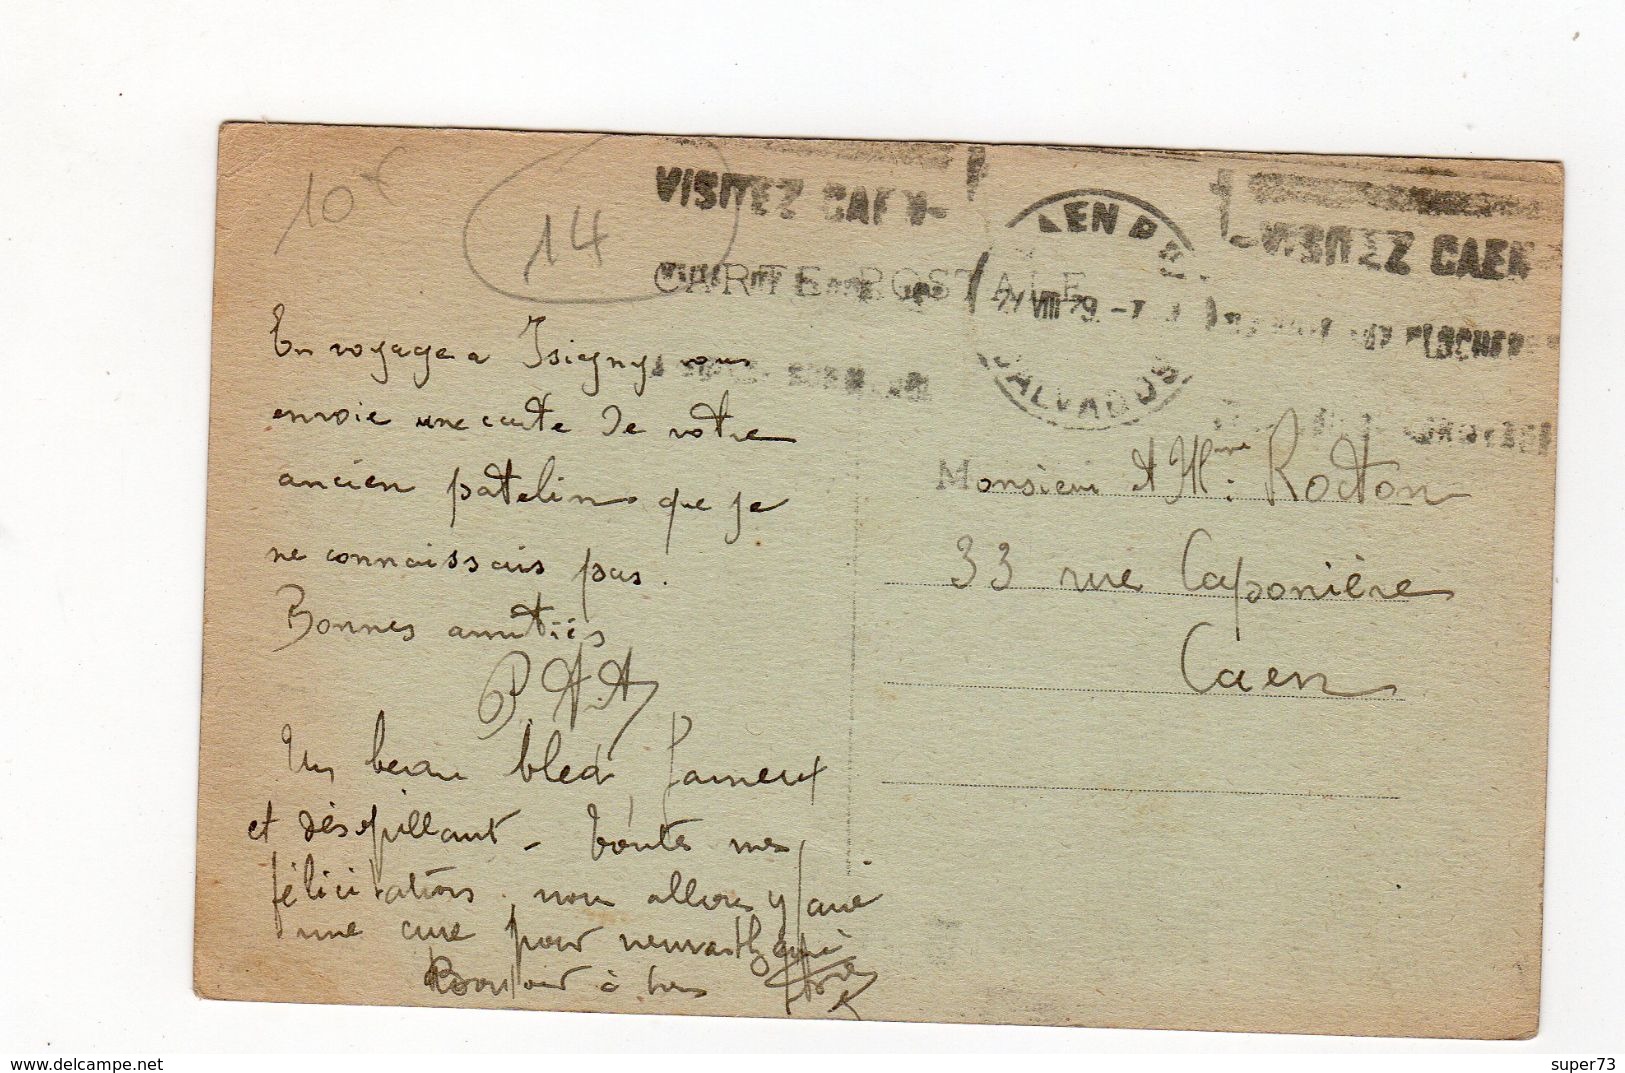 10€
14
VISITEZ CAEN
VISITEZ CAEN
CAEN
VIII 29
CALVADOS
CLOCHERS
CARTE POSTALE
En voyage a Isigny vous
envoie une carte de votre
ancien patelin que je
ne connaissais pas.
Bonnes amitiés
Un beau bled fameux
et désopillant - Toutes mes
félicitations, nous allons y faire
une cure pour neurasthénie
Bonsoir à tous
Monsieur et Mme Rocton
33 rue Caponière
Caen
www.delcampe.net
super73